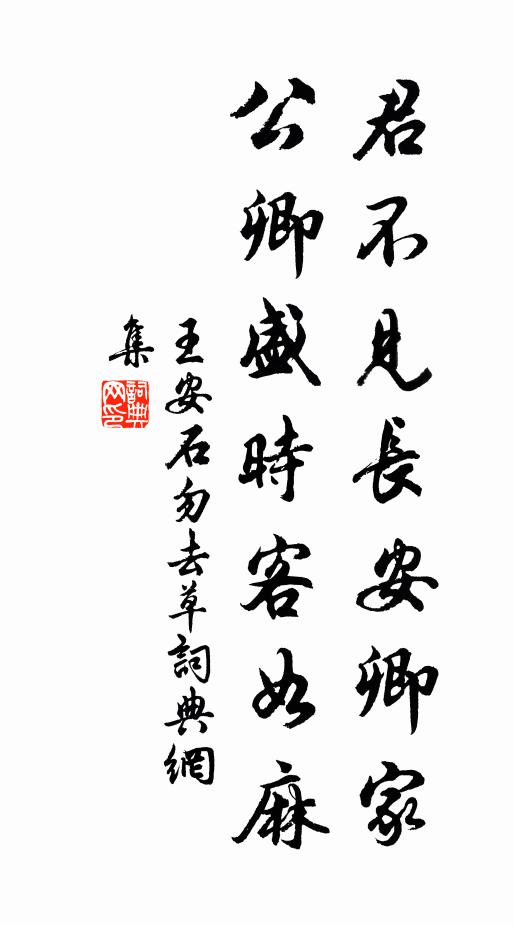 君不見長安卿家
公卿盛時客如麻
王安石勿去草詞典網
集
詞典網印